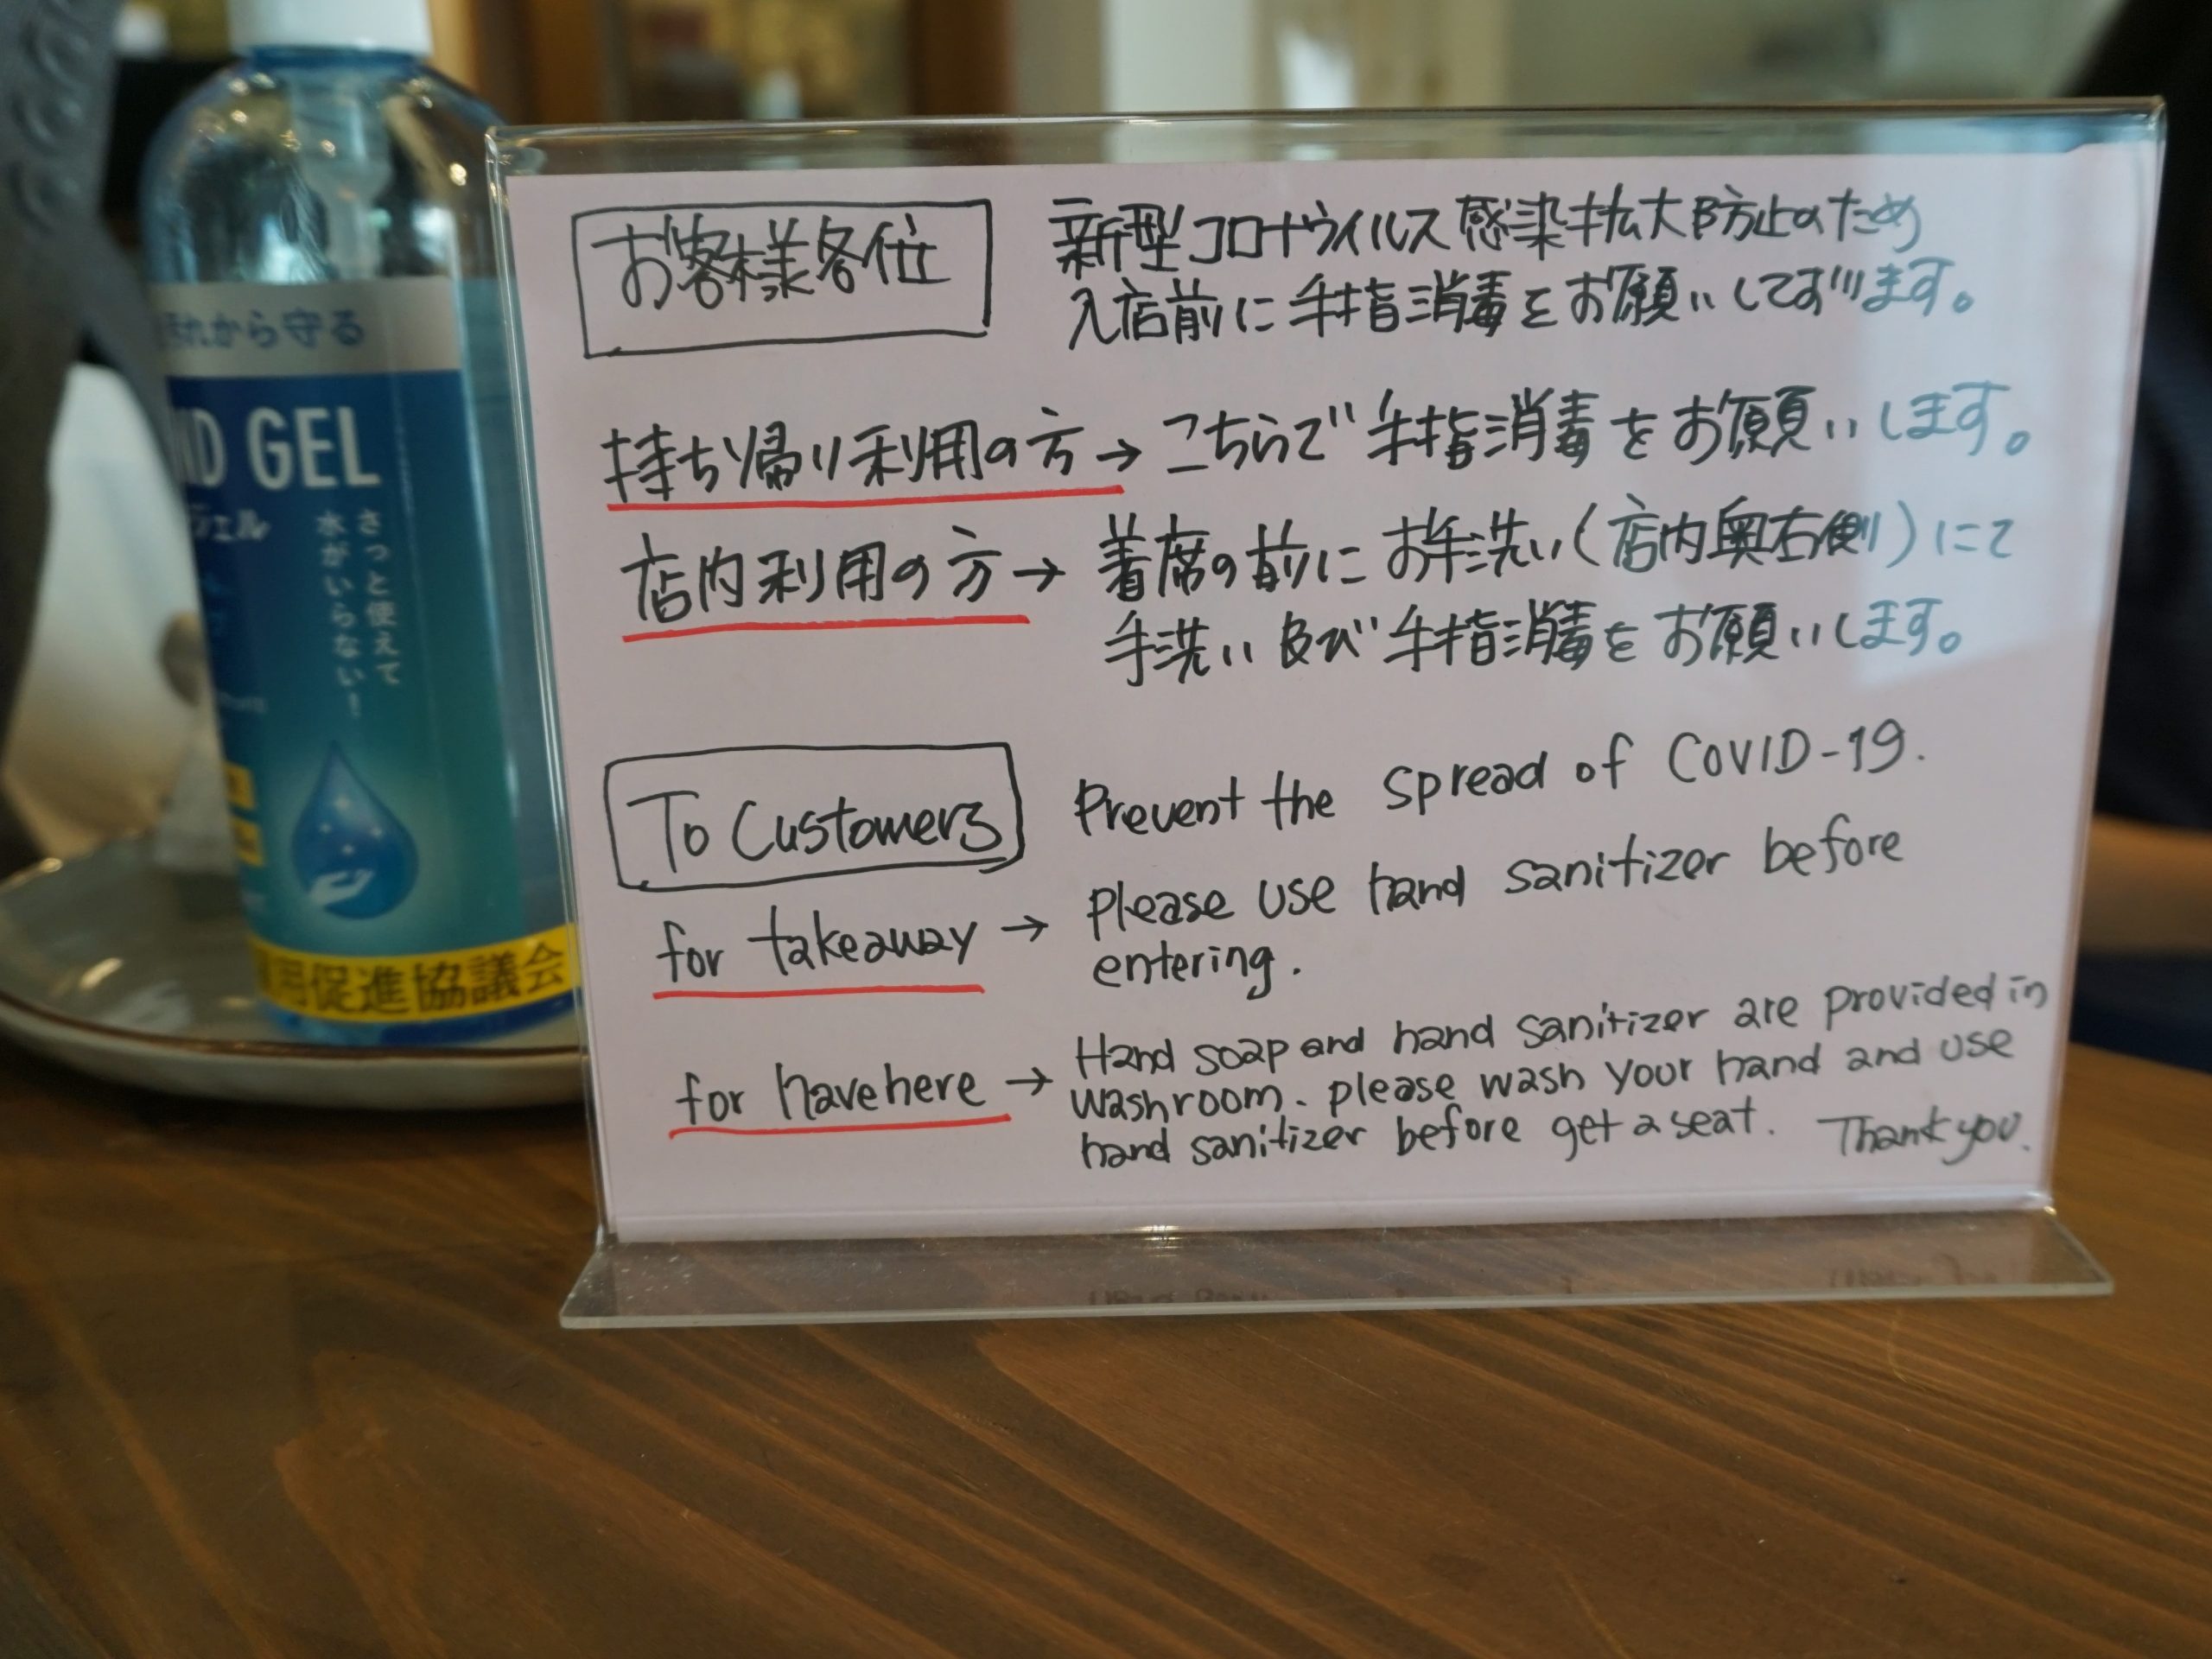 お客様各位
新型コロナウイルス感染拡大防止のため
入店前に手指消毒をお願いしております。
持ち帰り利用の方→こちらで手指消毒をお願いします。
店内利用の方→着席の前にお手洗い(店内奥右側)にて
手洗い及び手指消毒をお願いします。
To Customers
Prevent the spread of COVID-19.
for takeaway → please use hand sanitizer before
entering.
for have here → Hand soap and hand sanitizer are provided in
washroom. please wash your hand and use
hand sanitizer before get a seat. Thank you.
れから守る
ND GEL
ジェル
さっと使えて
水がいらない!
用促進協議会